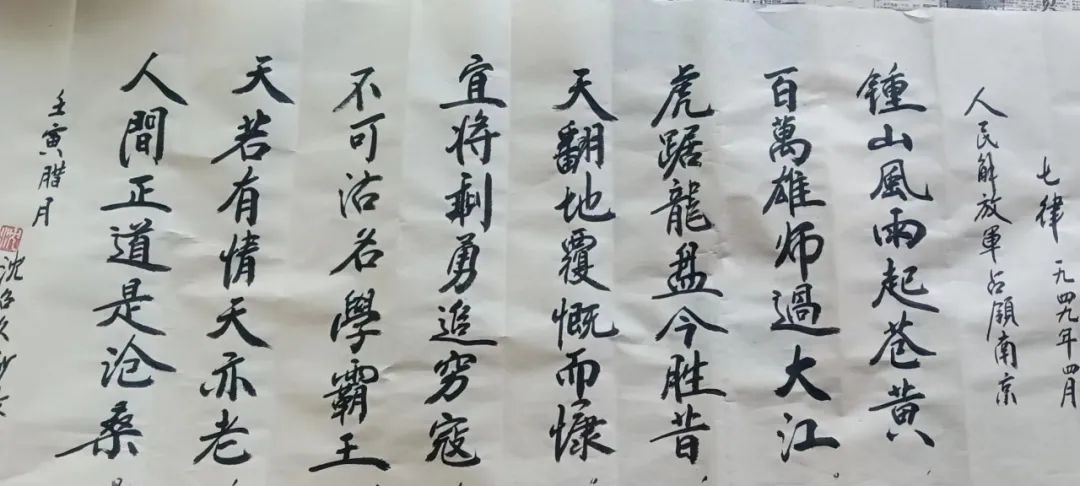 七律 一九四九年四月
人民解放軍占領南京
鍾山風雨起苍黄，
百萬雄师過大江。
虎踞龍盘今胜昔，
天翻地覆慨而慷。
宜将剩勇追穷寇，
不可沽名學霸王。
天若有情天亦老，
人間正道是沧桑
壬寅腊月
沈